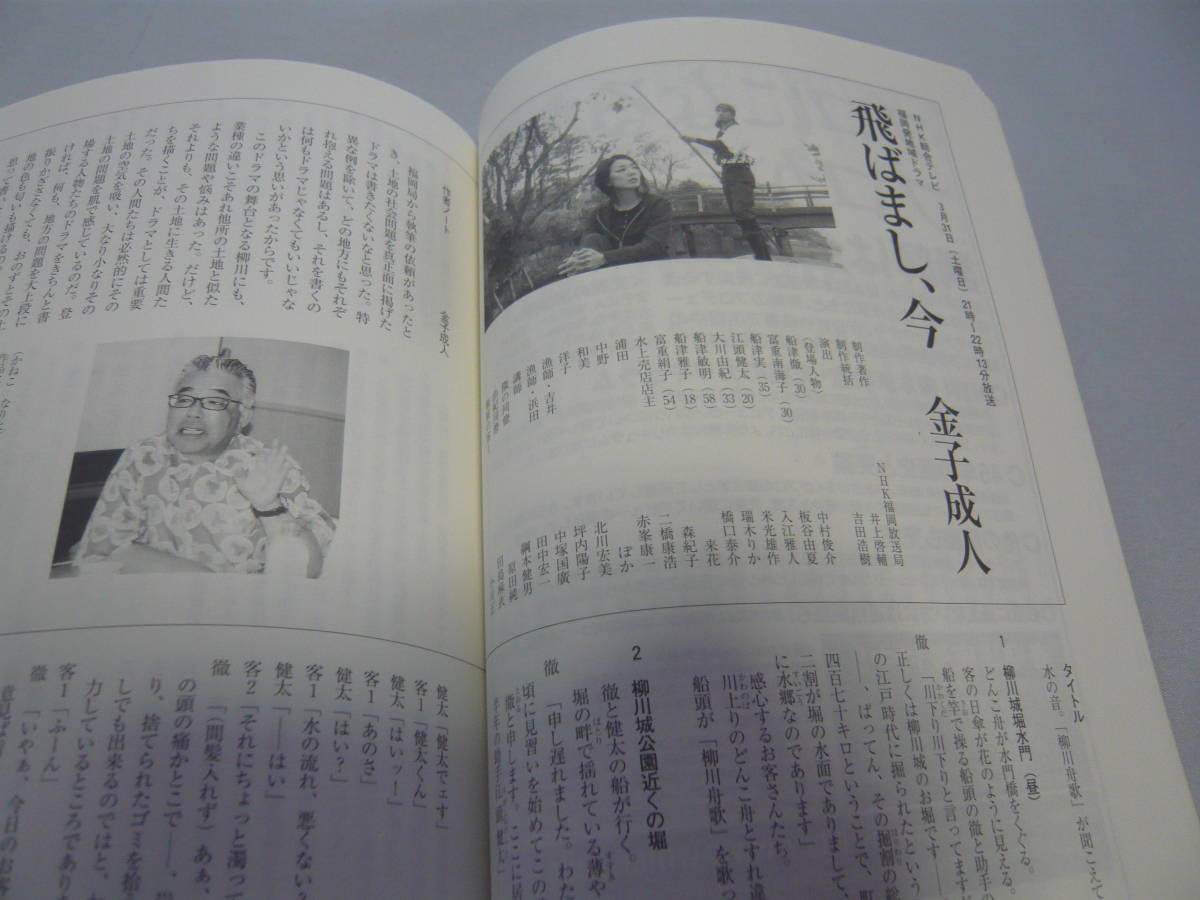 NHK総合テレビ 3月31日（土曜日）21時～22時13分放送
福岡発地域ドラマ
飛ばまし、今 金子成人
制作著作 NHK福岡放送局
制作統括 井上啓輔
演出 吉田浩樹
（登場人物）
船津徹（30） 中村俊介
富重南海子（30） 板谷由夏
船津実（35） 入江雅人
江頭健太（20） 米光雄作
大川由紀（33） 瑞木りか
船津敏明（58） 橋口泰介
船津雅子（18） 来花
富重絹子（54） 森紀子
水上売店店主 二橋康浩
浦田 赤峯康一
中野 ぽか
和美 北川宏美
洋子 坪内陽子
漁師・吉井 中塚国廣
漁師・浜田 田中宏一
講師 綱本健男
徹の同僚 原田純
由紀同僚 田島麻衣
タイトル
水の音。「柳川舟歌」が聞こえて
1 柳川城堀水門（昼）
どんこ舟が水門橋をくぐる。
客の日傘が花のように見える。
船を竿で操る船頭の徹と助手の
徹「川下り川下りと言ってますが
正しくは柳川城のお堀です――
の江戸時代に掘られたという
――、ばってん、その掘割の総
四百七十キロということで、町
二割が堀の水面でありまして、
に水郷なのであります」
感心するお客さんたち。
川上りのどんこ舟とすれ違
船頭が「柳川舟歌」を歌っ
2 柳川城公園近くの堀
徹と健太の船が行く。
堀の畔で揺れている薄や
徹「申し遅れました。わた
頃に見習いを始めてこの
徹と申します。ここに居
半年の助手江頭健太
作者ノート 金子成人
福岡局から執筆の依頼があったと
き、土地の社会問題を真正面に掲げた
ドラマは書きたくないなと思った。特
異な例を除いて、どの地方にもそれぞ
れ抱える問題はあるし、それを書くの
は何もドラマじゃなくてもいいじゃな
いかという思いがあったからです。
このドラマの舞台となる柳川にも、
業種の違いこそあれ他所の土地と似た
ような問題や悩みはあった。だけど、
それよりも、その土地に生きる人間た
ちを描くことが、ドラマとしては重要
だった。その人間たちは必然的にその
土地の空気を吸い、大なり小なりその
土地の問題を肌で感じているのだ。登
場する人物たちのドラマをきちんと書
ければ、何も、地方の問題を大上段に
振りかざさなくても、おのずとその土
地の色も匂いも描けるのの
（かねこ なりと
健太「健太でェす」
客1「健太くん」
健太「はいッー」
客1「あのさ」
健太「はい？」
客1「水の流れ、悪くない
健太「――はい」
客2「それにちょっと濁って
徹「（間髪入れず）あぁ、
の頭の痛かとこで――、
り、捨てられたゴミを拾
しても出来るのではと、
力しているところであり
客1「ふーん」
徹「いやぁ、今日のお客